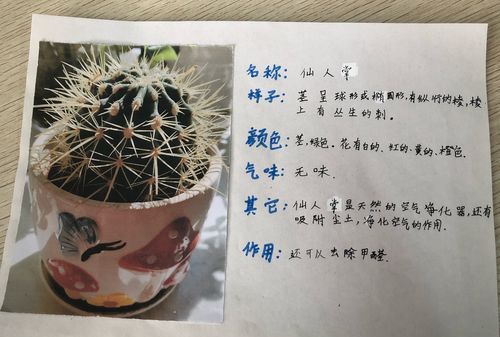 名称：仙人掌
样子：茎呈球形或椭圆形，有纵行的棱，棱
上有丛生的刺。
颜色：茎，绿色。花有白的、红的、黄的、橙色.
气味：无味.
其它：仙人掌是天然的空气净化器，还有
吸附尘土，净化空气的作用.
作用：还可以去除甲醛.